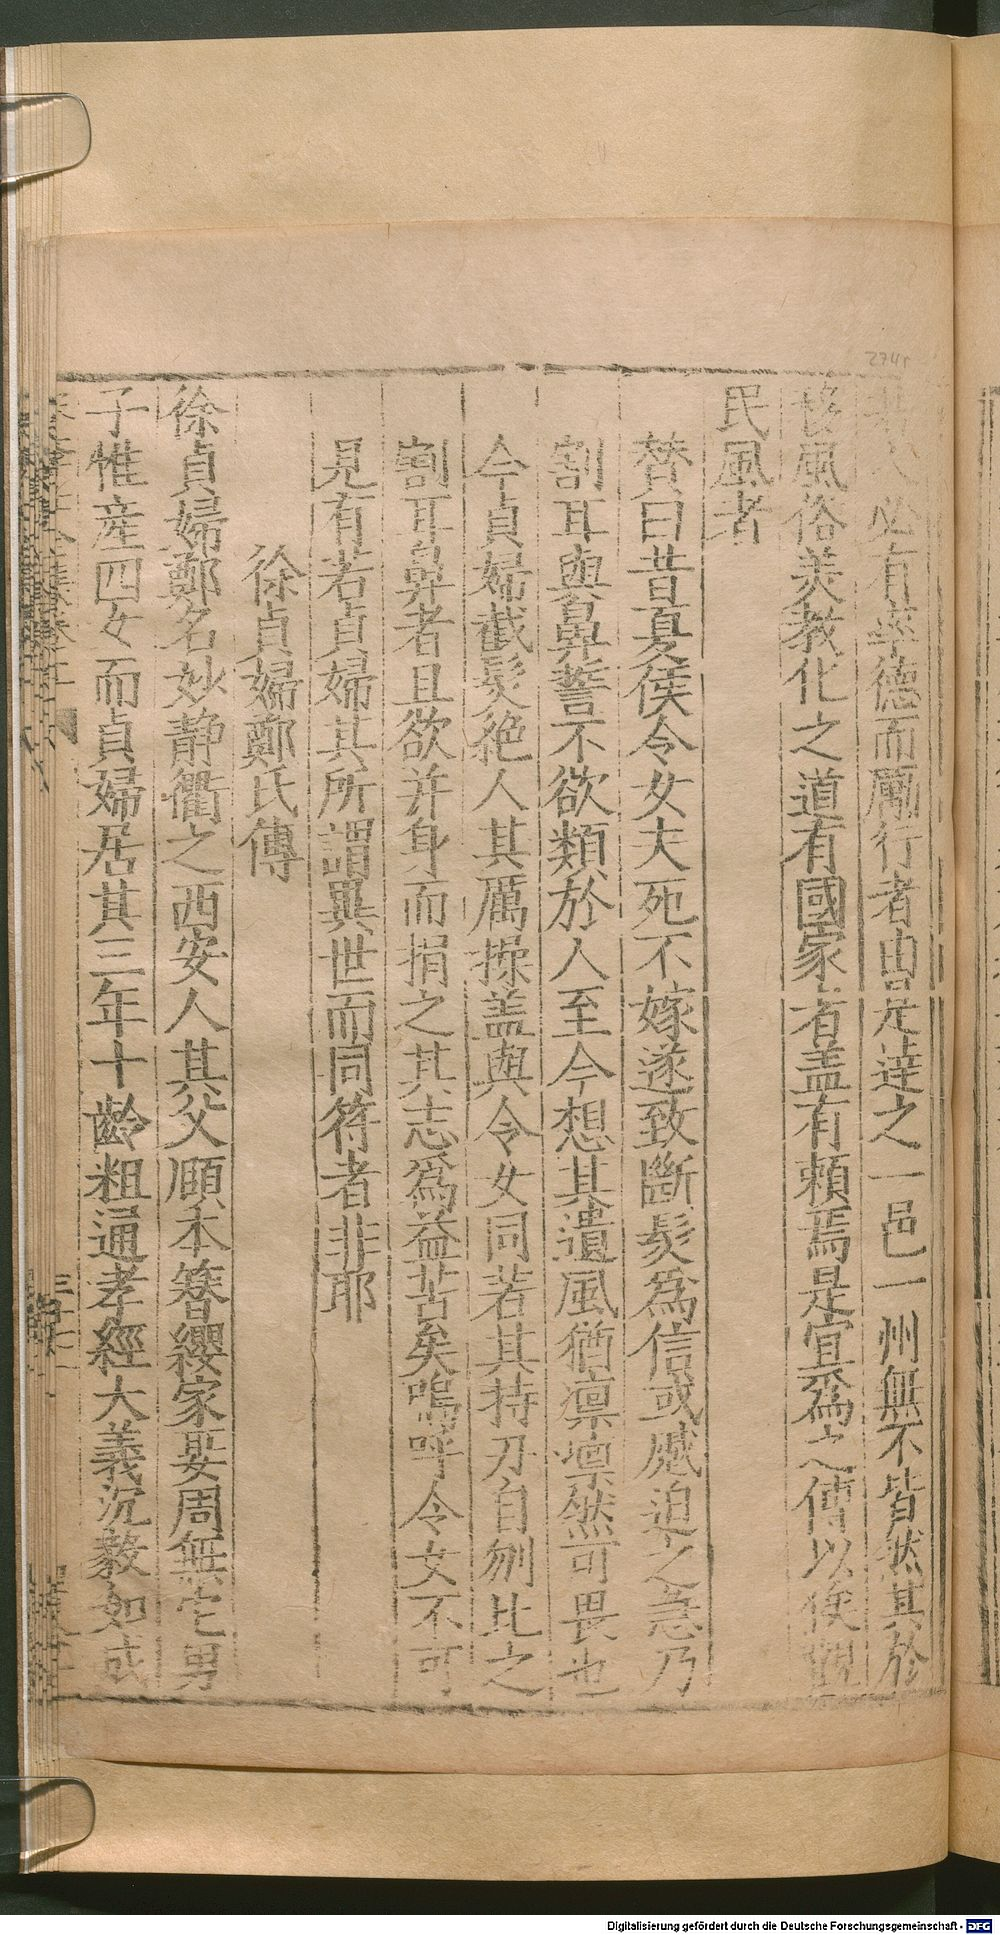 人必有卒德而勵行者由是達之一邑一州無不皆然其於
移風俗美教化之道有國家者盖有賴焉是宜爲之傳以俟觀
民風者
賛曰昔夏侯令女夫死不嫁遂致斷髮爲信或慼迫之急乃
割耳與鼻誓不欲類於人至今想其遺風猶凛凛然可畏也
今貞婦截髮絶人其厲操盖與令女同若其持刃自刎比之
割耳鼻者且欲并身而捐之其志爲益苦矣嗚呼令女不可
見有若貞婦其所謂異世而同符者非耶
徐貞婦鄭氏傳
徐貞婦鄭名妙静衢之西安人其父願本簪纓家娶周無它男
子惟産四女而貞婦居其三年十齡粗通孝經大義沉毅如成
274r
Digitalisierung gefördert durch die Deutsche Forschungsgemeinschaft - DFG